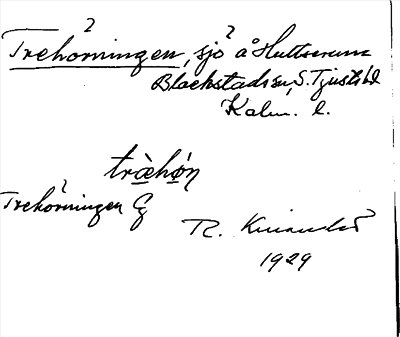 Trehörningen, sjö å Hultserum
Blackstads sn, S. Tjusts hd
Kalm. l.
tràhø̀n
Trehörningen G
R. Kinander
1929